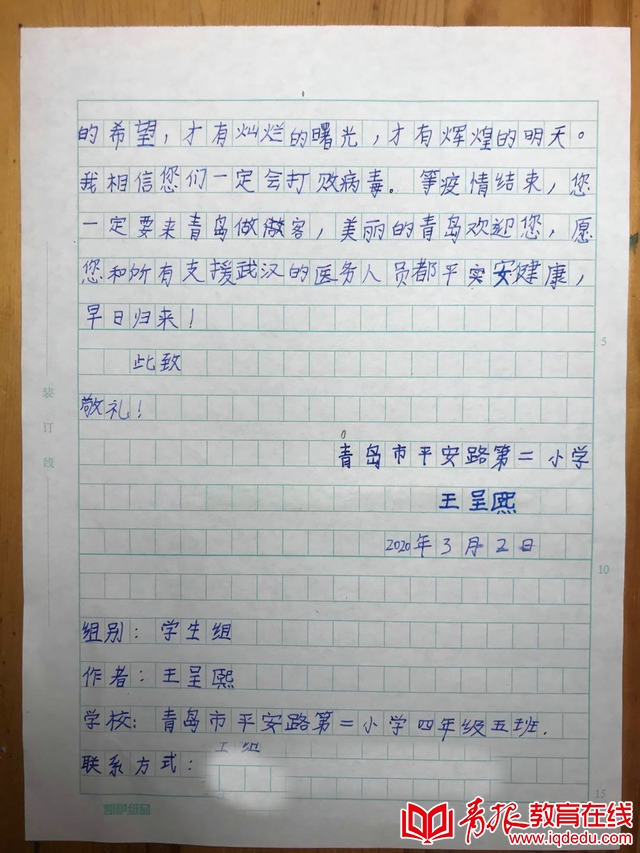 的希望，才有灿烂的曙光，才有辉煌的明天。
我相信您们一定会打败病毒。等疫情结束，您
一定要来青岛做做客，美丽的青岛欢迎您，愿
您和所有支援武汉的医务人员都平实安健康，
早日归来！
此致
敬礼！
青岛市平安路第二小学
王呈熙
2020年3月2日
组别：学生组
作者：王呈熙
学校：青岛市平安路第二小学四年级五班.
联系方式：
装订线
5
10
15
青报教育在线
www.iqdedu.com